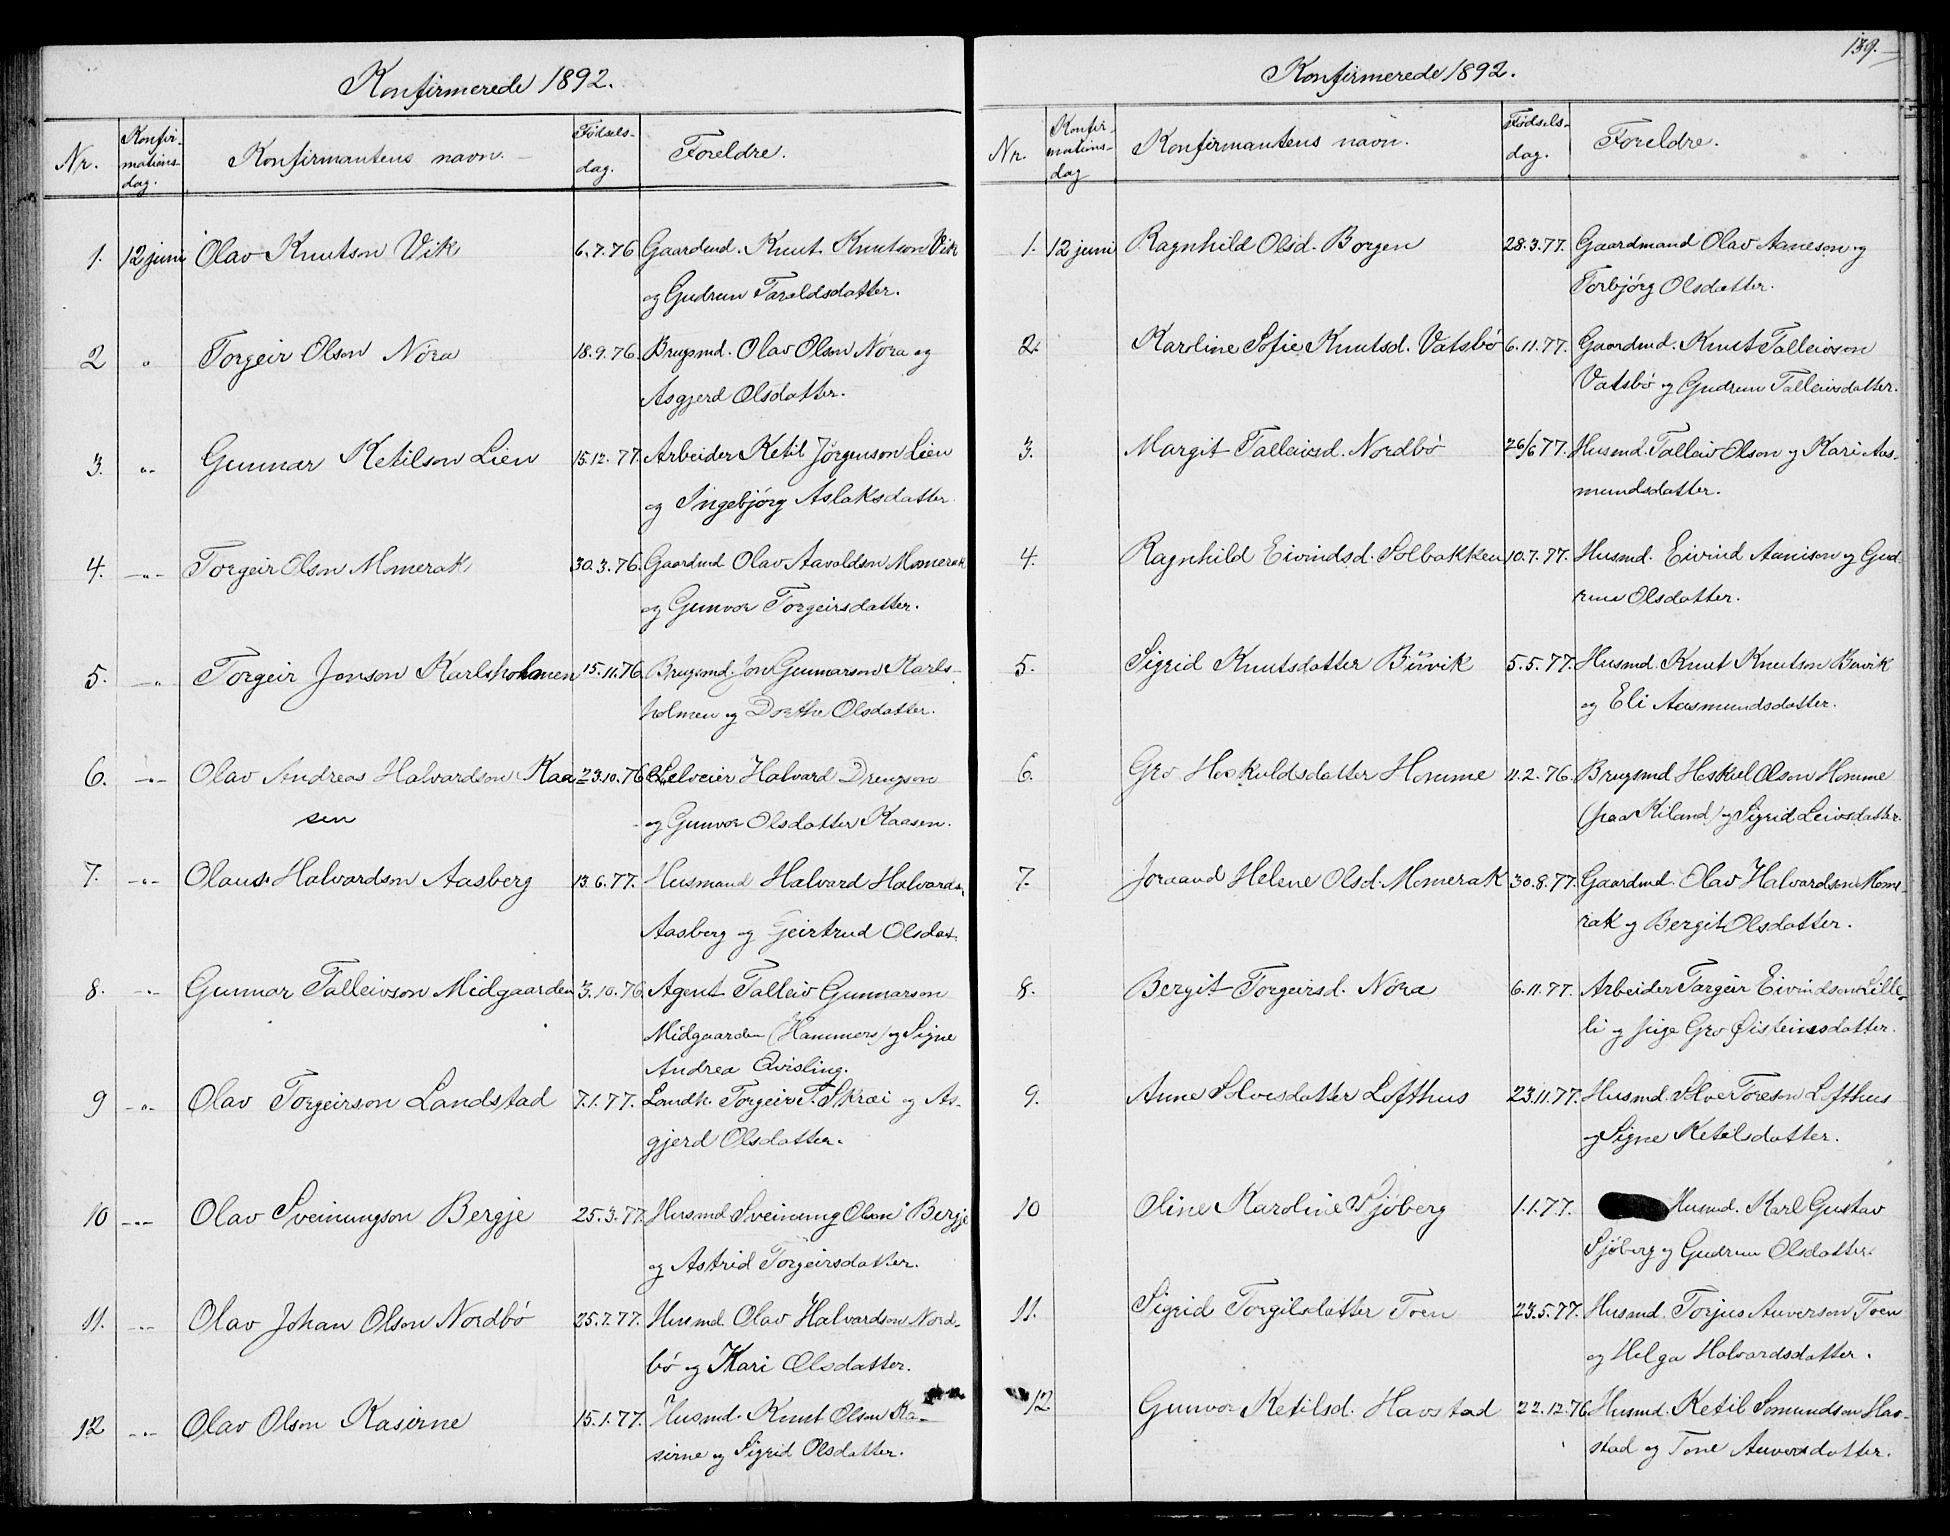 Konfirmerede 1892.
Nr. Konfir-mations-dag. Konfirmantens navn. Fødsels-dag. Foreldre.
1. 12 juni Olav Knutson Vik 6.7.76 Gaardmd. Knut Knutson Vik
og Gudrun Taraldsdatter.
2 " Torgeir Olson Nöra 18.9.76. Brugsmd. Olav Olson Nöra og
Asgjerd Olsdatter.
3. " Gunnar Ketilson Lien 15.12.77. Arbeider Ketil Jörgenson Lien
og Ingebjörg Aslaksdatter.
4. " Torgeir Olson Momrak 30.3.76. Gaardmd Olav Aavoldson Momrak
og Gunvor Torgeirsdatter.
5. " Torgeir Jonson Karlsholmen 15.11.76. Brugsmd. Jon Gunnarson Karls-
holmen og Dorthe Olsdatter.
6. " Olav Andreas Halvardson Kaa- 23.10.76 Selveier Halvard Drengson
sen og Gunvor Olsdatter Kaasen.
7. " Olaus Halvardson Aasberg 13.6.77. Husmand Halvard Halvards.
Aasberg og Geirtrud Olsdat.
8. " Gunnar Talleivson Midgaarden 3.10.76. Agent Talleiv Gunnarson
Midgaarden (Hammers) og Signe
Andrea Qvisling.
9 " Olav Torgeirson Landstad 7.1.77. Landh. Torgeir T. Skræi og As-
gjerd Olsdatter.
10 " Olav Sveinungson Bergje 25.3.77. Husmd Sveinung Olson Bergje
og Astrid Torgeirsdatter.
11. " Olav Johan Olson Nordbö 25.7.77. Husmd Olav Halvardson Nord-
bö og Kari Olsdatter.
12 " Olav Olson Kasirne 15.1.77. Husmd. Knut Olson Ka-
sirne og Sigrid Olsdatter.
139.
Konfirmerede 1892.
Nr. Konfir-mations-dag Konfirmantens navn. Fødsels-dag. Foreldre.
1. 12 juni Ragnhild Olsd. Borgen 28.3.77. Gaardmand Olav Aaneson og
Torbjörg Olsdatter.
2. Karoline Sofie Knutsd. Vatsbö 6.11.77. Gaardmd. Knut Talleivson
Vatsbö og Gudrun Talleivsdatter.
3. Margit Talleivsd. Nordbö 26/6 77. Husmd. Talleiv Olson og Kari Aas-
mundsdatter.
4. Ragnhild Eivindsd. Solbakken 10.7.77. Husmd. Eivind Aanison og Gud-
run Olsdatter.
5. Sigrid Knutsdatter Buvik 5.5.77. Husmd. Knut Knutson Buvik
og Eli Aasmundsdatter.
6. Gro Heskuldsdatter Homme 4.2.76. Brugsmd Heskul Olson Homme
(paa Kiland) og Sigrid Leivsdatter.
7. Joraand Helene Olsd. Momrak 30.8.77. Gaardmd. Olav Halvardson Mom-
rak og Bergit Olsdatter.
8. Bergit Torgeirsd. Nöra 6.11.77. Arbeider Targeir Eivindson Lille-
li og pige Gro Øisteinsdatter.
9. Anne Solvesdatter Lofthus 23.11.77. Husmd. Solve Toreson Lofthus
og Signe Ketilsdatter.
10 Oline Karoline Sjöberg 1.1.77. Husmd. Karl Gustav
Sjöberg og Gudrun Olsdatter.
11. Sigrid Torgilsdatter Toen 23.5.77. Husmd. Torjus Anverson Toen
og Helga Halvardsdatter.
12 Gunvor Ketilsd. Havstad 22.12.76 Husmd. Ketil Somundson Hav-
stad og Tone Anversdatter.